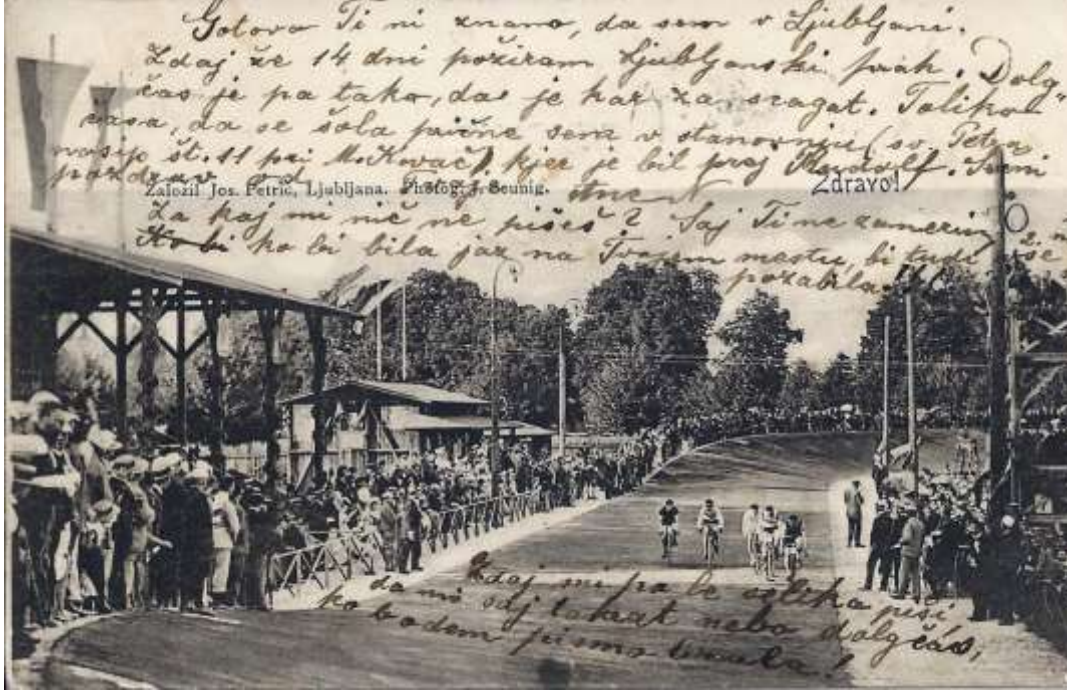 Gotovo Ti ni znano, da sem v Ljubljani.
Zdaj že 14 dni požiram ljubljanski prah. Dolg-
čas je pa tako, da je kar za zcagat. Toliko
časa, da se šola prične sem v stanovnju (sv. Petra
nasip št. 11 pri M. Kovač) kjer je bil prej Rudolf.
pozdrav od
Založil Jos. Petrič, Ljubljana. Photog. J. Seunig.
Zdravo!
Za kaj mi nič ne pišeš? Saj Ti ne zamerim
ko bi bila jaz na Tvojem mestu, bi tudi vse
pozabila.
Zdaj mi pa le piši
da mi saj takrat nebo dolgčas,
ko bodem pismo